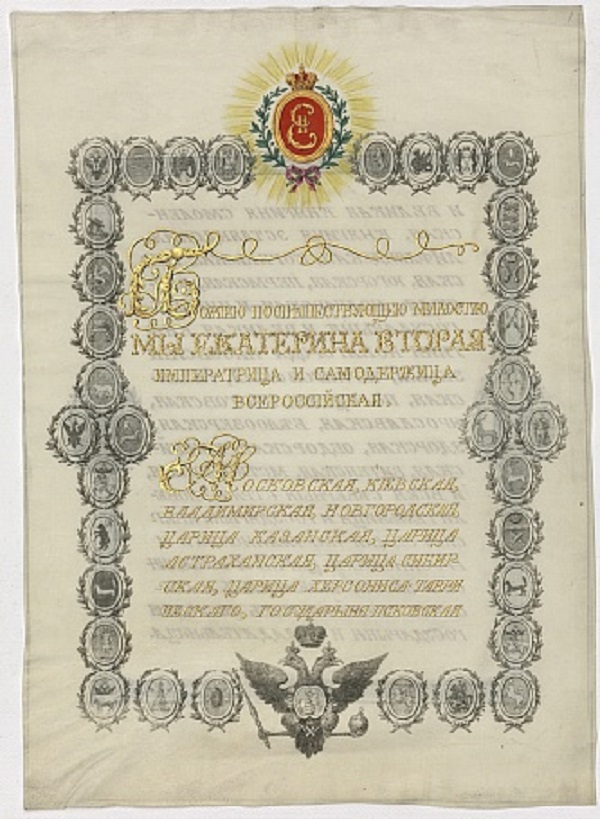 Божию поспѣшествующею милостию
МЫ ЕКАТЕРИНА ВТОРАЯ
ИМПЕРАТРИЦА И САМОДЕРЖИЦА
ВСЕРОССІЙСКАЯ
МОСКОВСКАЯ, КІЕВСКАЯ,
ВЛАДИМИРСКАЯ, НОВГОРОДСКАЯ,
ЦАРИЦА КАЗАНСКАЯ, ЦАРИЦА
АСТРАХАНСКАЯ, ЦАРИЦА СИБИР-
СКАЯ, ЦАРИЦА ХЕРСОНИСА-ТАВРИ-
ЧЕСКАГО, ГОСУДАРЫНЯ ПСКОВСКАЯ